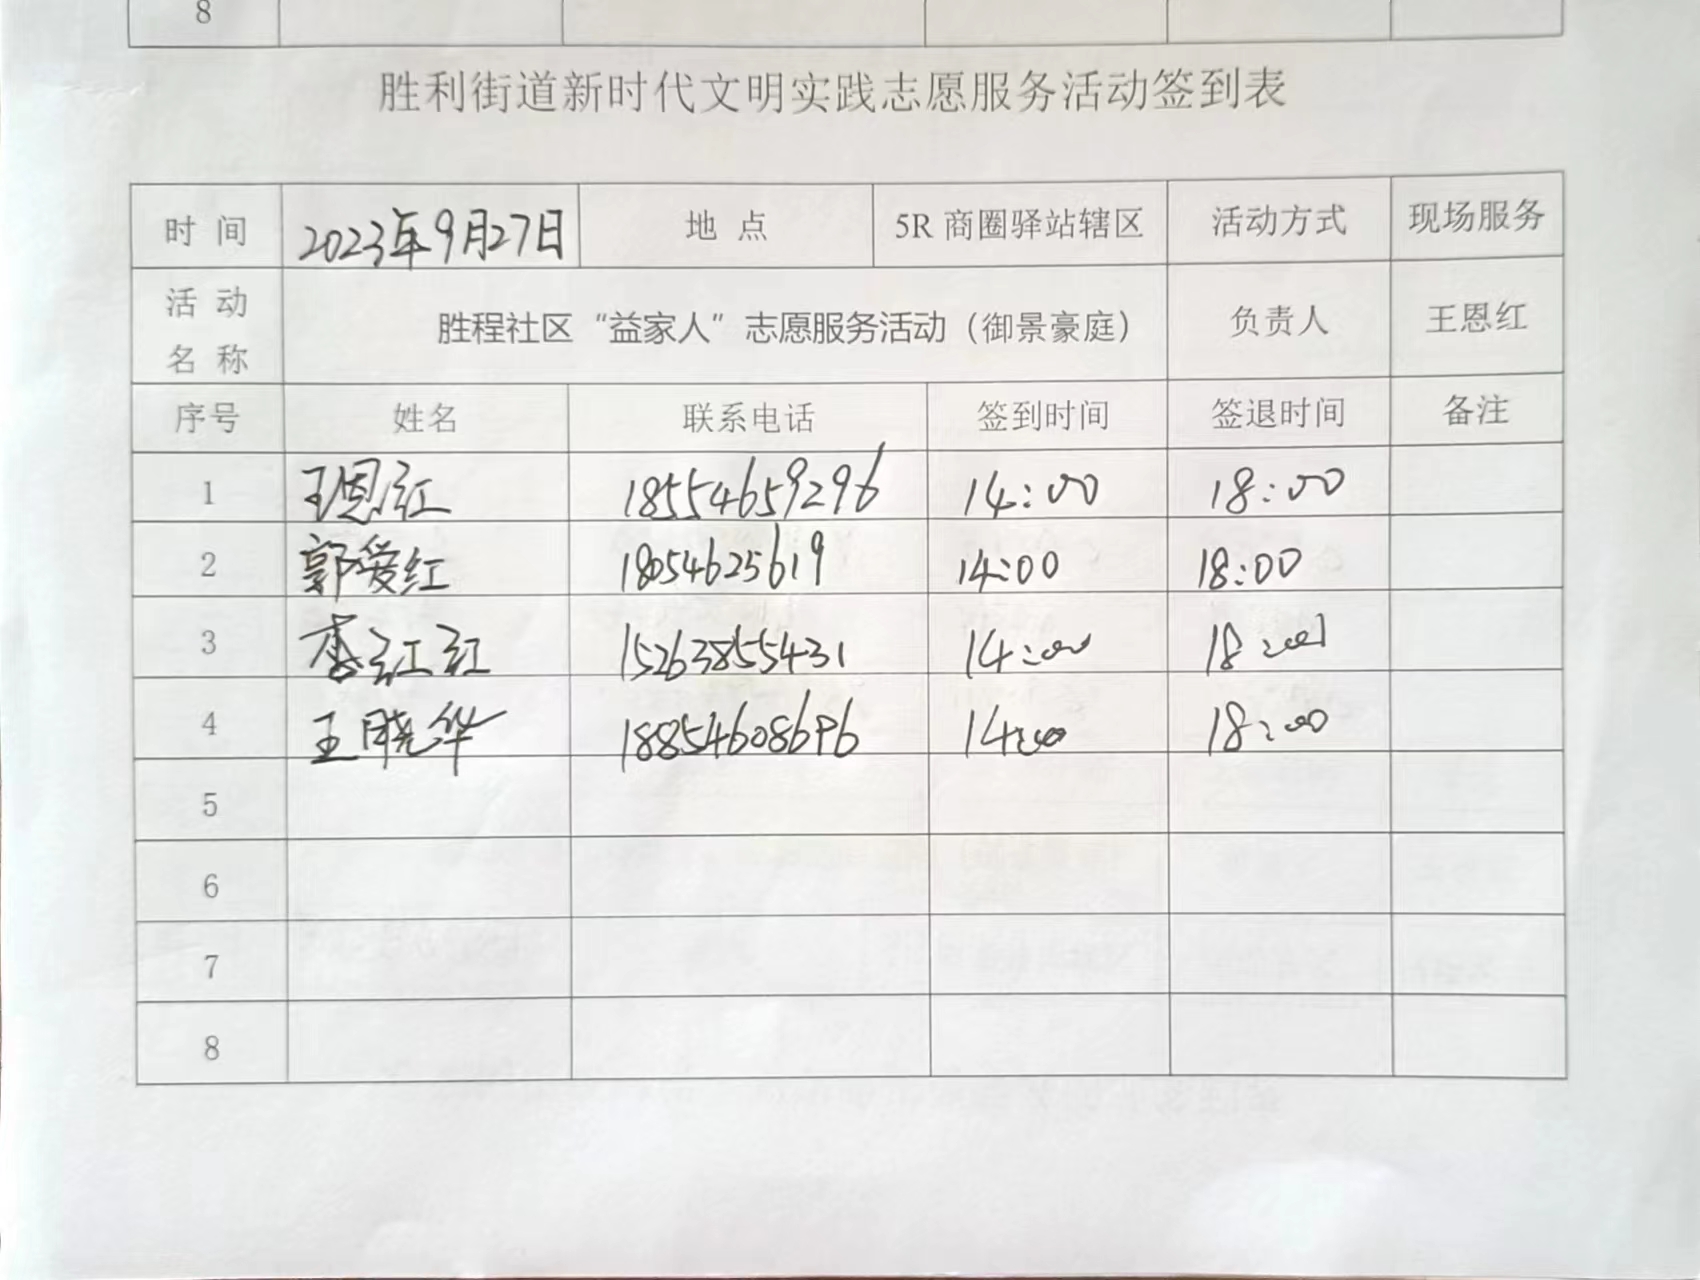 8
胜利街道新时代文明实践志愿服务活动签到表
时 间 2023年9月27日 地 点 5R 商圈驿站辖区 活动方式 现场服务
活 动
名 称 胜程社区“益家人”志愿服务活动（御景豪庭） 负责人 王恩红
序号 姓名 联系电话 签到时间 签退时间 备注
1 王恩红 18554659296 14:00 18:00
2 郭爱红 18054625619 14:00 18:00
3 李红红 15263855431 14:00 18:00
4 王晓华 18854608696 14:00 18:00
5
6
7
8